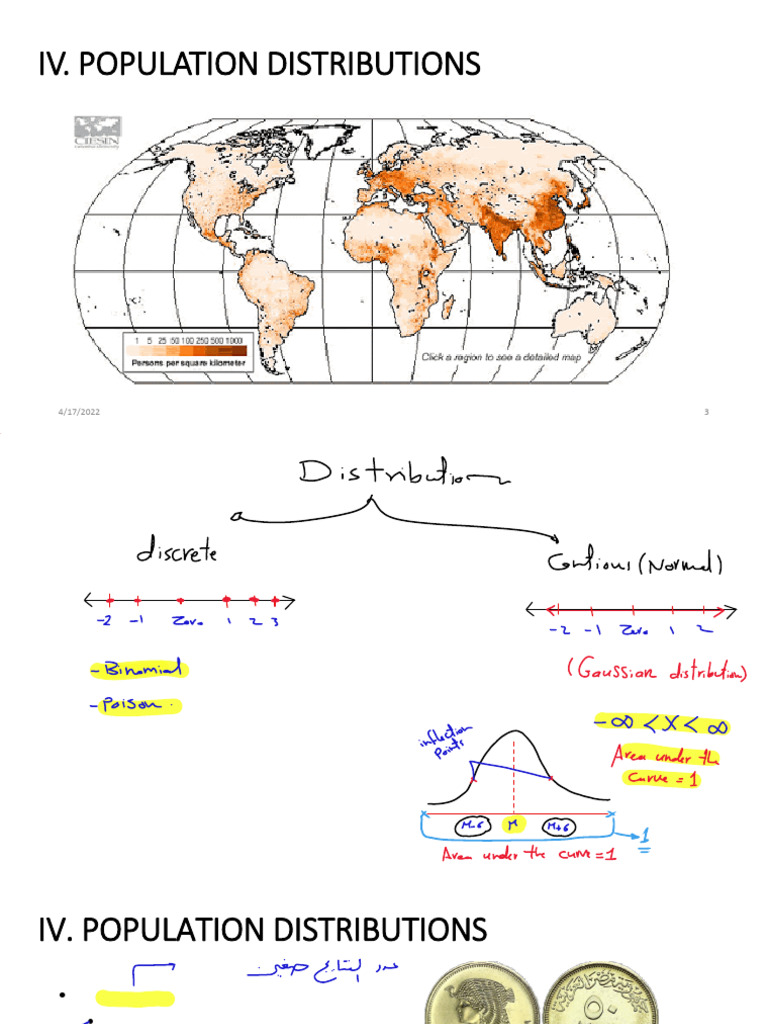 IV. POPULATION DISTRIBUTIONS
CIESIN
1 5 25 50 100 250 500 1000
Persons per square kilometer
Click a region to see a detailed map
4/17/2022
3
Distribution
discrete
Contious (Normal)
-2 -1 Zero 1 2 3
-2 -1 Zero 1 2
- Binomial
- Poison.
(Gaussian distribution)
-∞ < X < ∞
Area under the
curve = 1
inflection
points
M-6 M M+6
1
Area under the curve = 1
IV. POPULATION DISTRIBUTIONS
عدد النتايج صغير
جمهورية مصر العربية
٥٠